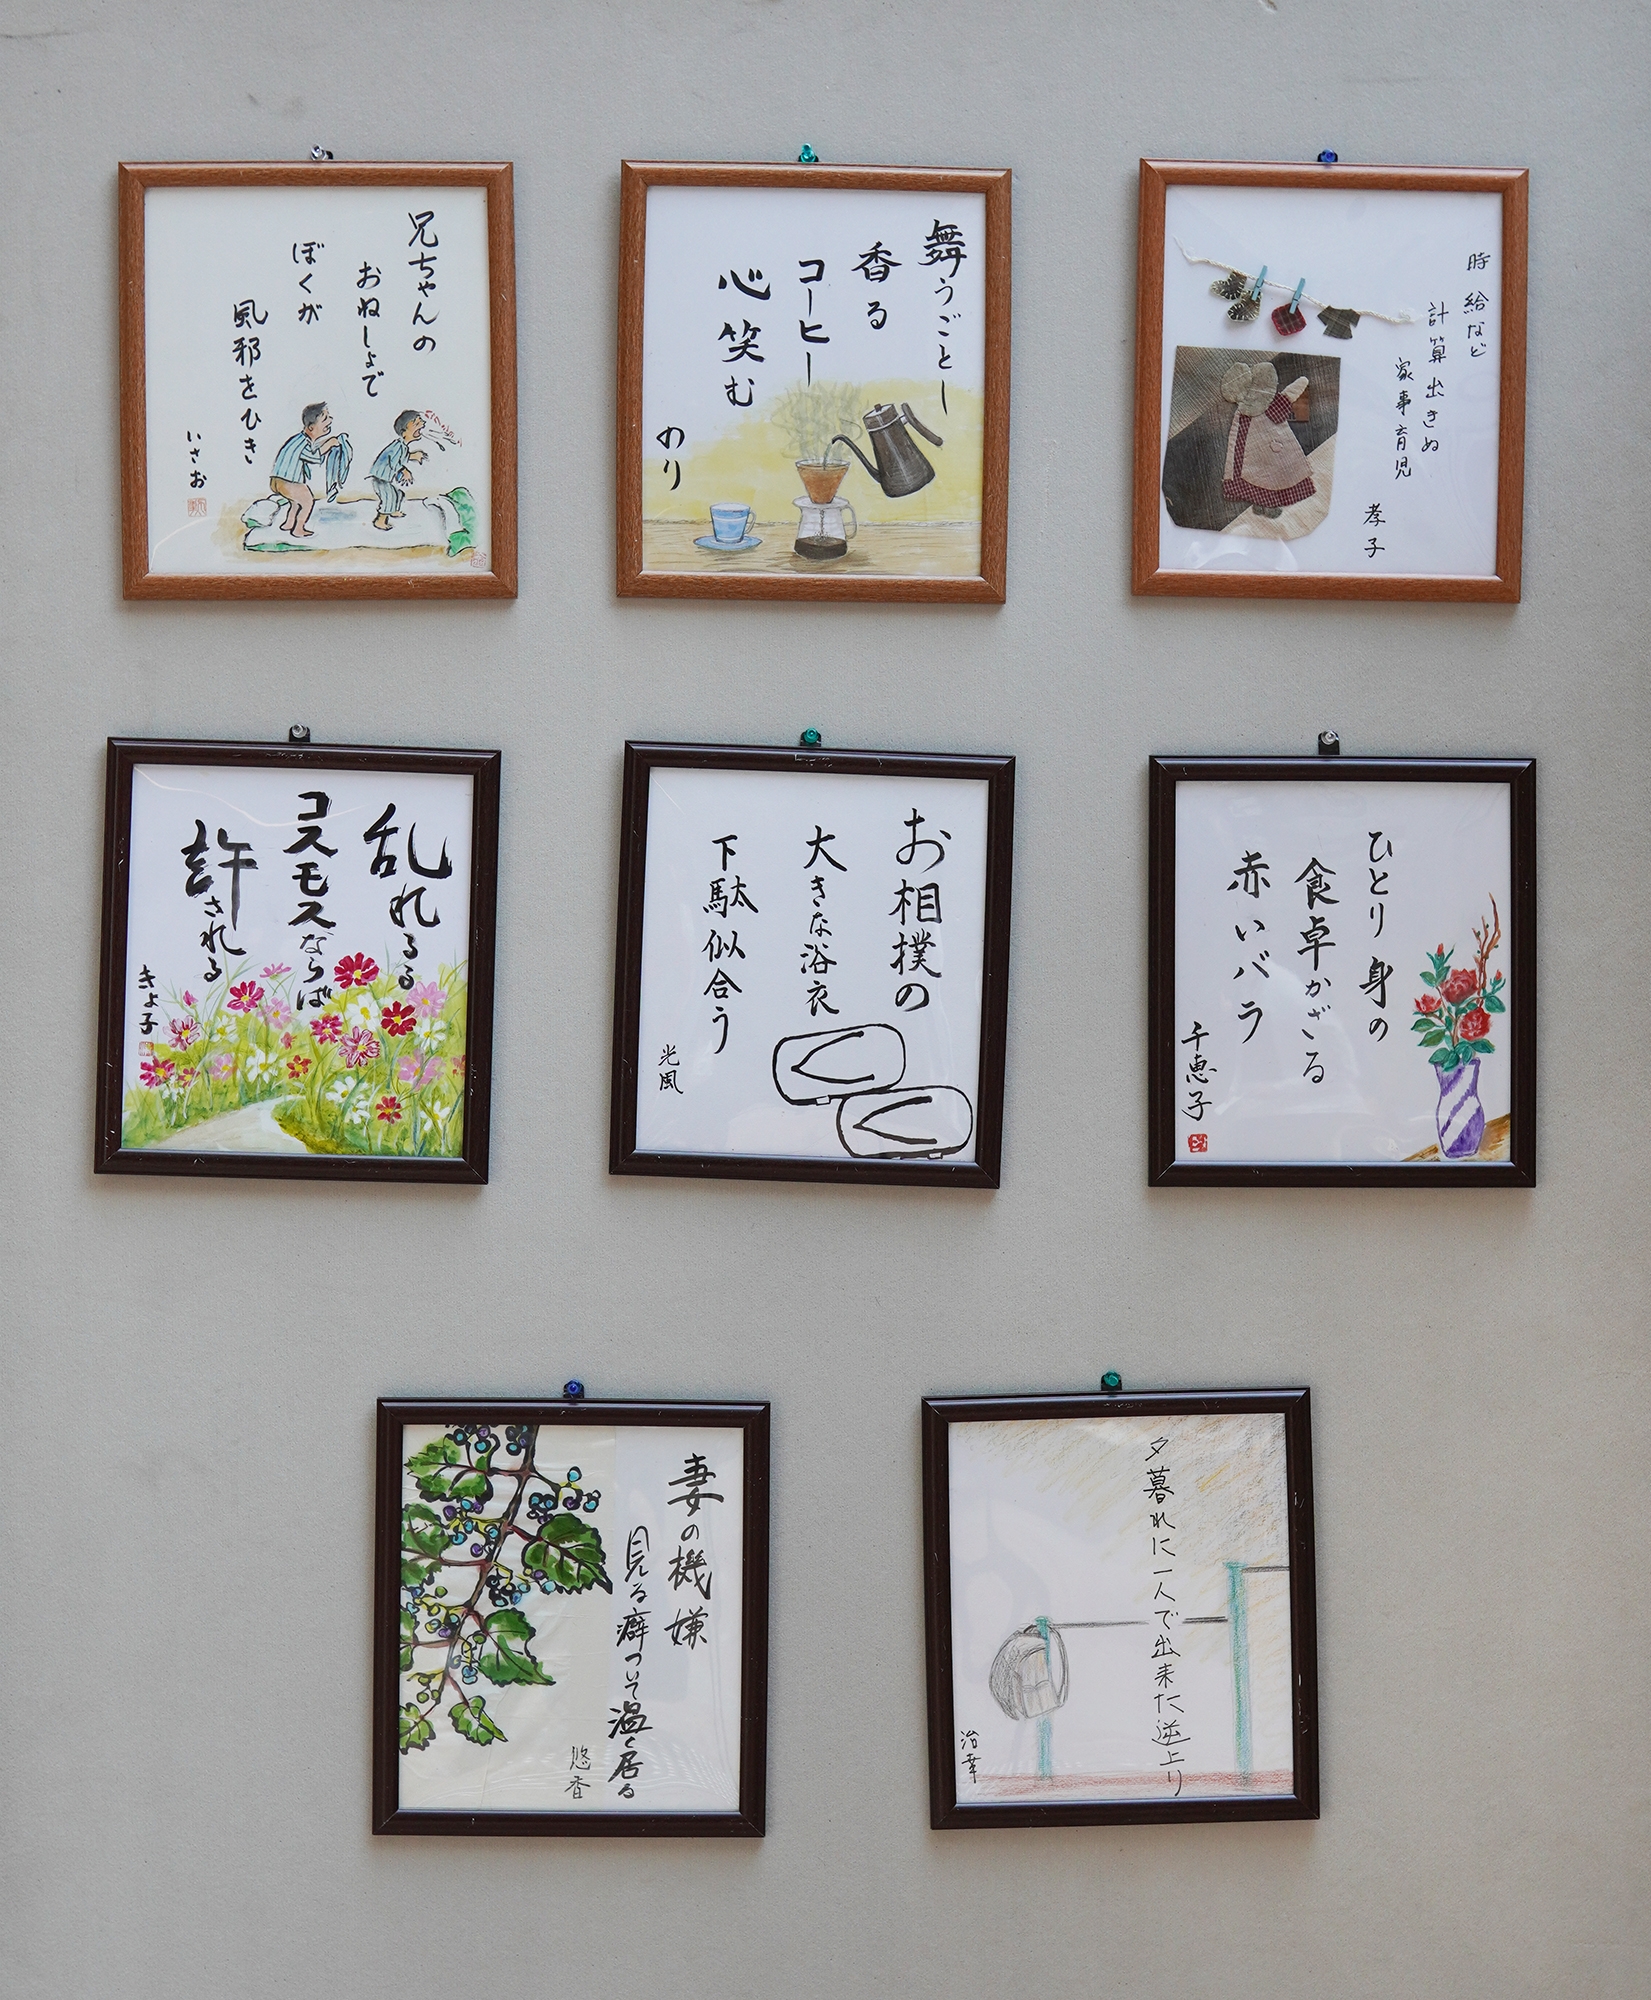 兄ちゃんの
おねしょで
ぼくが
風邪をひき
いさお
舞うごとし
香る
コーヒー
心笑む
のり
時給など
計算出きぬ
家事育児
孝子
乱れるる
コスモスならば
許される
きよ子
お相撲の
大きな浴衣
下駄似合う
光風
ひとり身の
食卓かざる
赤いバラ
千恵子
妻の機嫌
見る癖ついて温く居る
悠香
夕暮れに一人で出来た逆上り
治幸